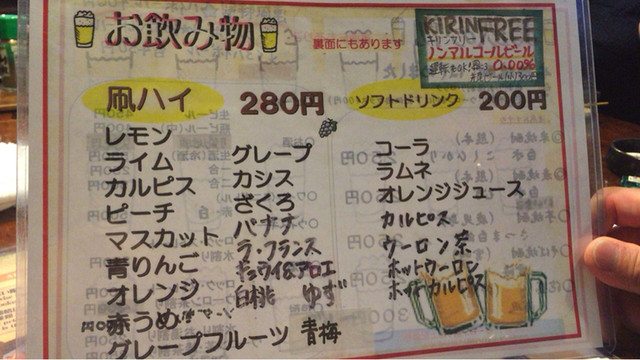 お飲み物
裏面にもあります
KIRIN FREE
キリンフリー
ノンアルコールビール
0.00%
凧ハイ 280円
レモン
ライム
カルピス
ピーチ
マスカット
青りんご
オレンジ
赤うめ
グレープフルーツ
グレープ
カシス
ざくろ
バナナ
ラ・フランス
キュウイ&アロエ
白桃 ゆず
青梅
ソフトドリンク 200円
コーラ
ラムネ
オレンジジュース
カルピス
ウーロン茶
ホットウーロン
ホットカルピス